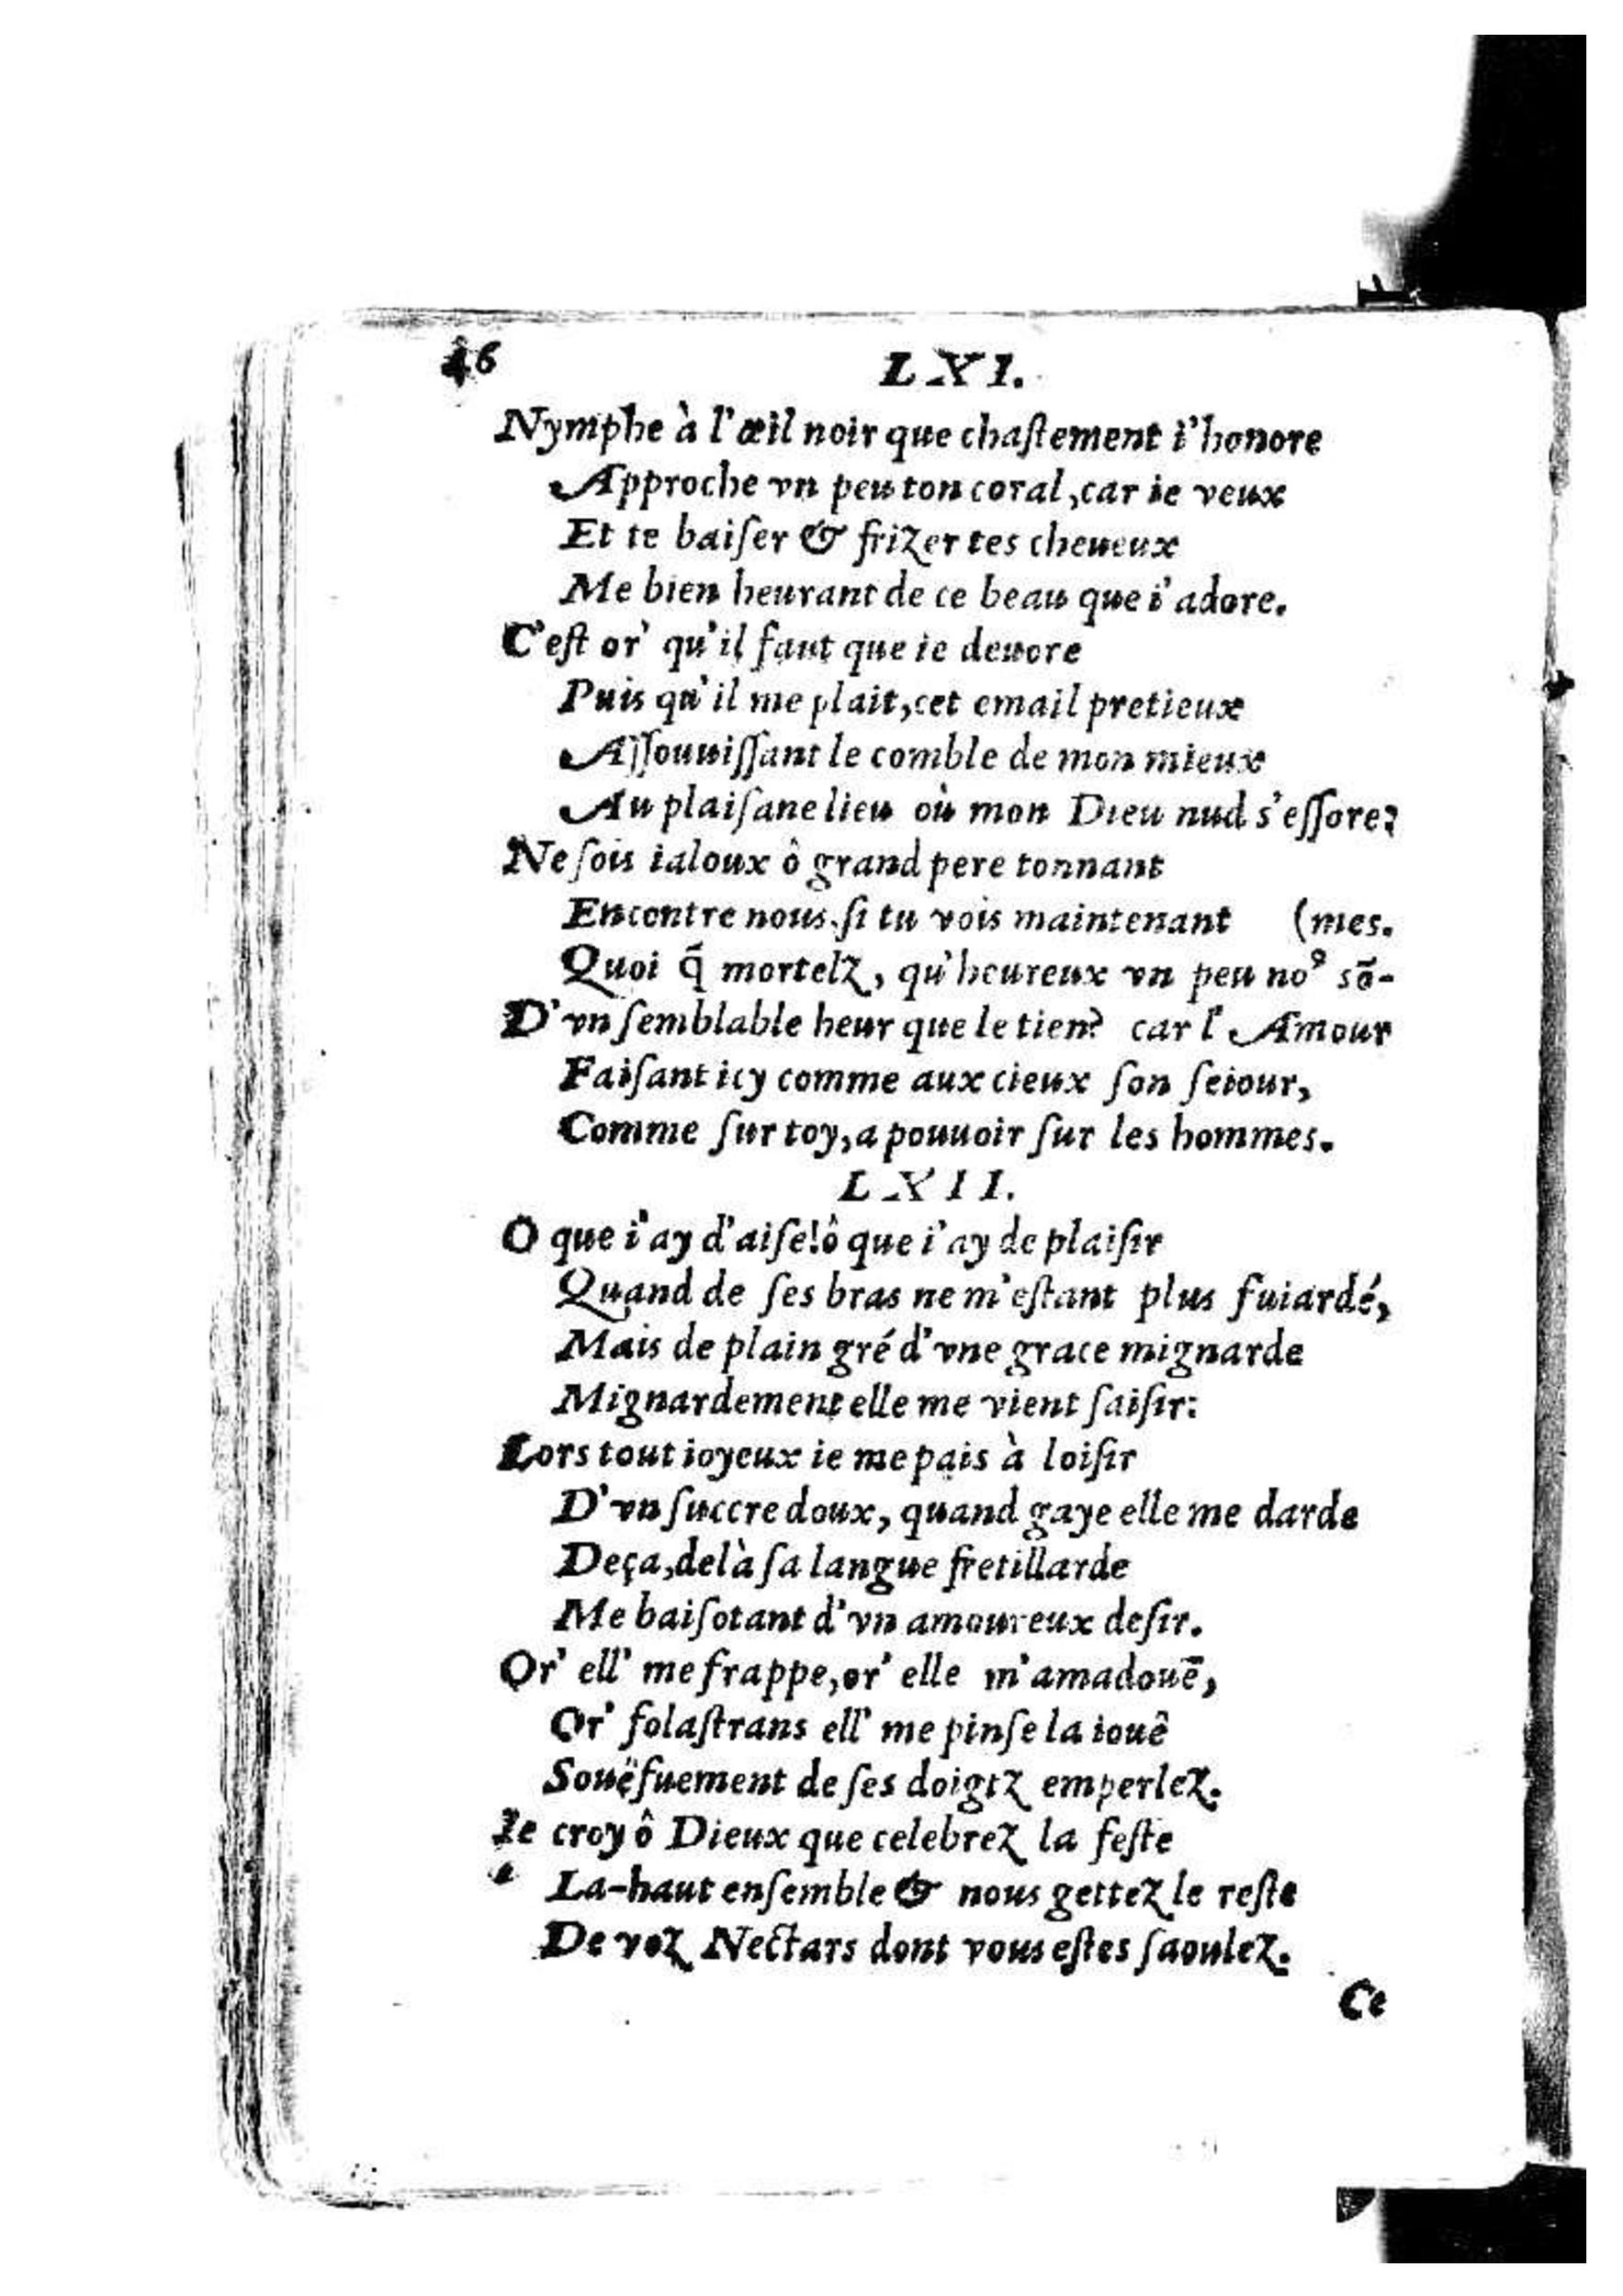 46
LXI.
Nymphe à l'œil noir que chaſtement i'honore
Approche vn peu ton coral, car ie veux
Et te baiſer & friZer tes cheueux
Me bien heurant de ce beau que i'adore.
C'eſt or' qu'il faut que ie deuore
Puis qu'il me plait, cet email pretieux
Aſſouuiſſant le comble de mon mieux
Au plaiſane lieu où mon Dieu nud s'eſſore?
Ne ſois ialoux ô grand pere tonnant
Encontre nous, ſi tu vois maintenant (mes.
Quoi q̃ mortelz, qu'heureux vn peu noꝰ sõ-
D'vn ſemblable heur que le tien? car l'Amour
Faiſant icy comme aux cieux ſon ſeiour,
Comme ſur toy, a pouuoir ſur les hommes.
LXII.
O que i'ay d'aiſe! ô que i'ay de plaiſir
Quand de ſes bras ne m'eſtant plus fuiardé,
Mais de plain gré d'vne grace mignarde
Mignardement elle me vient ſaiſir:
Lors tout ioyeux ie me pais à loiſir
D'vn ſuccre doux, quand gaye elle me darde
Deça, delà ſa langue fretillarde
Me baiſotant d'vn amoureux deſir.
Or' ell' me frappe, or' elle m'amadouē,
Or' folaſtrans ell' me pinſe la iouê
Souëfuement de ſes doigtz emperlez.
Ie croy ô Dieux que celebrez la feſte
La-haut enſemble & nous gettez le reſte
De voz Nectars dont vous eſtes ſaoulez.
Ce